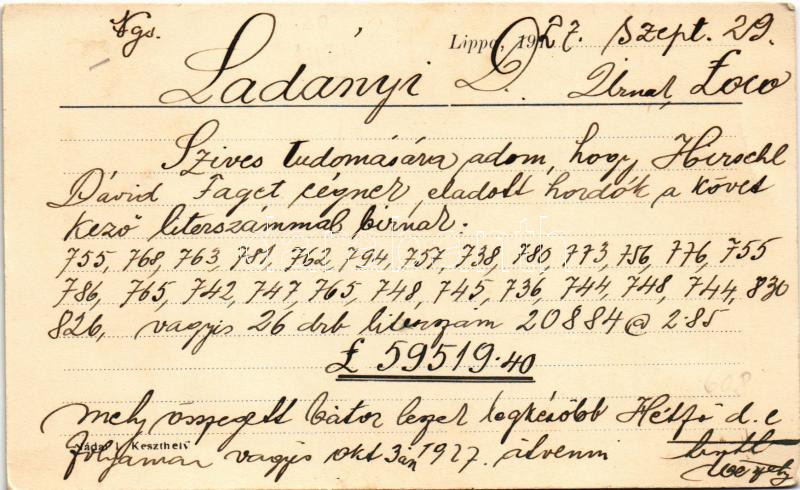 Ngs.
Lippa, 1927. Szept. 29.
Ladányi D. Úrnak, Loco
Szives tudomására adom, hogy Hirschl
Dávid Faget cégnek eladott hordók a követ
kező literszámmal birnak:
755, 768, 763, 781, 762, 794, 757, 738, 780, 773, 756, 776, 755
786, 765, 742, 747, 765, 748, 745, 736, 744, 748, 744, 830
826, vagyis 26 drb literszám 20884 @ 2.85
£ 59519.40
mely összegett bátor leszek legkésőbb Hétfő d. e
folyaman vagyis okt 3án 1927. átvenni
Nádai I. Keszthely
608